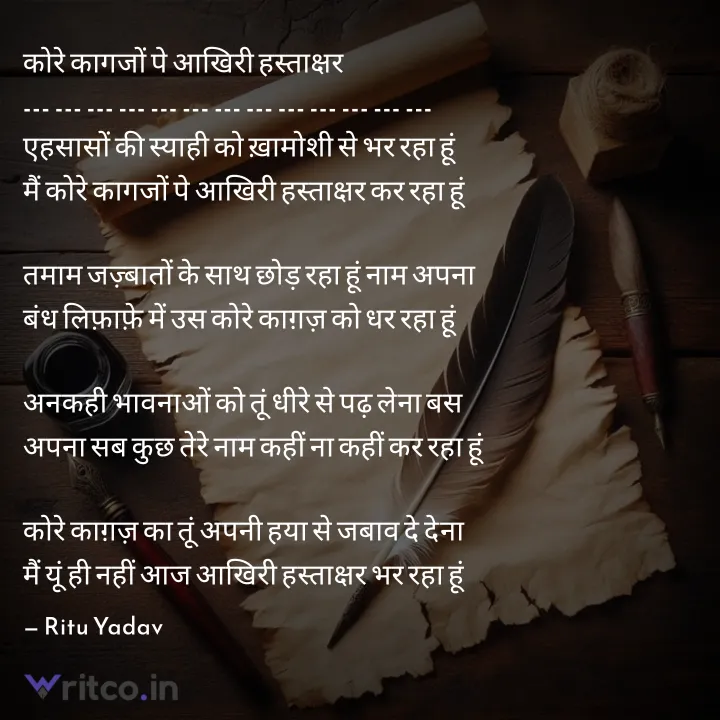 कोरे कागजों पे आखिरी हस्ताक्षर
--- --- --- --- --- --- --- --- --- --- --- --- ---
एहसासों की स्याही को ख़ामोशी से भर रहा हूं
मैं कोरे कागजों पे आखिरी हस्ताक्षर कर रहा हूं
तमाम जज़्बातों के साथ छोड़ रहा हूं नाम अपना
बंध लिफ़ाफ़े में उस कोरे काग़ज़ को धर रहा हूं
अनकही भावनाओं को तूं धीरे से पढ़ लेना बस
अपना सब कुछ तेरे नाम कहीं ना कहीं कर रहा हूं
कोरे काग़ज़ का तूं अपनी हया से जबाव दे देना
मैं यूं ही नहीं आज आखिरी हस्ताक्षर भर रहा हूं
– Ritu Yadav
Writco.in